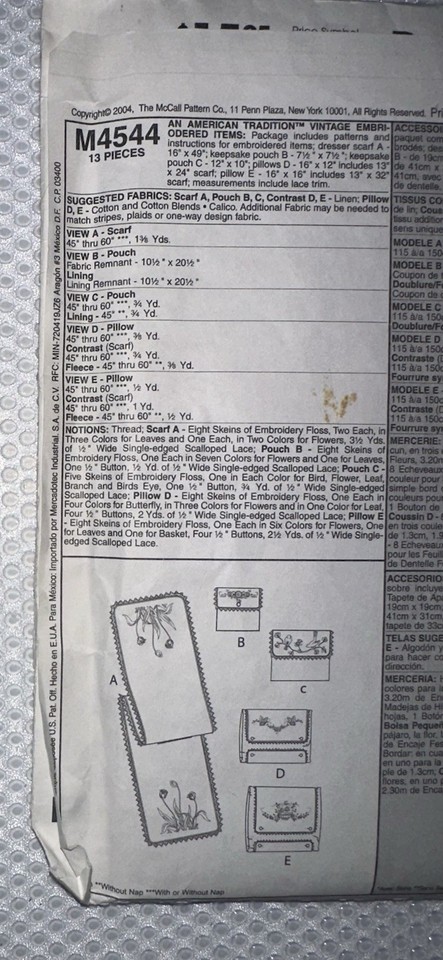 Copyright© 2004, The McCall Pattern Co., 11 Penn Plaza, New York 10001, All Rights Reserved.
M4544
13 PIECES
AN AMERICAN TRADITION™ VINTAGE EMBRI-
ODERED ITEMS: Package includes patterns and
instructions for embroidered items; dresser scarf A -
16" x 49"; keepsake pouch B - 7½" x 7½"; keepsake
pouch C - 12" x 10"; pillows D - 16" x 12" includes 13"
x 24" scarf; pillow E - 16" x 16" includes 13" x 32"
scarf; measurements include lace trim.
SUGGESTED FABRICS: Scarf A, Pouch B, C, Contrast D, E - Linen; Pillow
D, E - Cotton and Cotton Blends • Calico. Additional Fabric may be needed to
match stripes, plaids or one-way design fabric.
VIEW A - Scarf
45" thru 60" ***, 1⅜ Yds.
VIEW B - Pouch
Fabric Remnant - 10½" x 20½"
Lining
Lining Remnant - 10½" x 20½"
VIEW C - Pouch
45" thru 60" ***, ¾ Yd.
Lining - 45" **, ¾ Yd.
VIEW D - Pillow
45" thru 60" ***, ⅜ Yd.
Contrast (Scarf)
45" thru 60" ***, ¾ Yd.
Fleece - 45" thru 60" **, ⅜ Yd.
VIEW E - Pillow
45" thru 60" ***, ½ Yd.
Contrast (Scarf)
45" thru 60" ***, 1 Yd.
Fleece - 45" thru 60" **, ½ Yd.
NOTIONS: Thread; Scarf A - Eight Skeins of Embroidery Floss, Two Each, in
Three Colors for Leaves and One Each, in Two Colors for Flowers, 3½ Yds.
of ½" Wide Single-edged Scalloped Lace; Pouch B - Eight Skeins of
Embroidery Floss, One Each in Seven Colors for Flowers and One for Leaves,
One ½" Button, ½ Yd. of ½" Wide Single-edged Scalloped Lace; Pouch C -
Five Skeins of Embroidery Floss, One in Each Color for Bird, Flower, Leaf,
Branch and Birds Eye, One ½" Button, ¾ Yd. of ½" Wide Single-edged
Scalloped Lace; Pillow D - Eight Skeins of Embroidery Floss, One Each in
Four Colors for Butterfly, in Three Colors for Flowers and in One Color for Leaf,
Four ½" Buttons, 2 Yds. of ½" Wide Single-edged Scalloped Lace; Pillow E
- Eight Skeins of Embroidery Floss, One Each in Six Colors for Flowers, One
for Leaves and One for Basket, Four ½" Buttons, 2½ Yds. of ½" Wide Single-
edged Scalloped Lace.
A
B
C
D
E
**Without Nap ***With or Without Nap
U.S. Pat. Off. Hecho en E.U.A. Para México: Importado por Mercadotec Industrial, S.A. de C.V.
ACCESSO
paquet com
brodés; des
B - de 19cm
de 41cm x
41cm, avec
de dentelle
TISSUS CO
de lin; Cous
tissu addition
sens unique
MODELE A
115 à/a 150
MODELE B
Coupon de
Doublure/F
Coupon de
MODELE C
115 à/a 150
Doublure/F
MODELE D
115 à/a 150c
Contraste (
115 à/a 150c
Fourrure sy
MODELE E
115 à/a 150c
Contraste
115 à/a 150c
Fourrure syn
MERCERIE:
cun, en trois c
Fleurs, 3.20m
8 Echeveaux
couleur pour
simple bord
couleurs pour
1 Bouton de
Coussin D -
en trois coule
de 1.3cm, 1.9
- 8 Echeveau
pour les Feuil
de Dentelle F
ACCESORIO
sobre incluye
Tapete de Ap
19cm x 19cm
41cm x 31cm
tapete de 33c
TELAS SUGE
E - Algodón y
para hacer co
dirección.
MERCERIA: H
colores para
3.20m de En
Madejas de Hi
hojas, 1 Botó
Bolsa Pequeñ
pájaro, la flor,
de Encaje Fes
Bordar: en cua
en uno para la
ple de 1.3cm; C
flores, en uno
2.30m de Enca